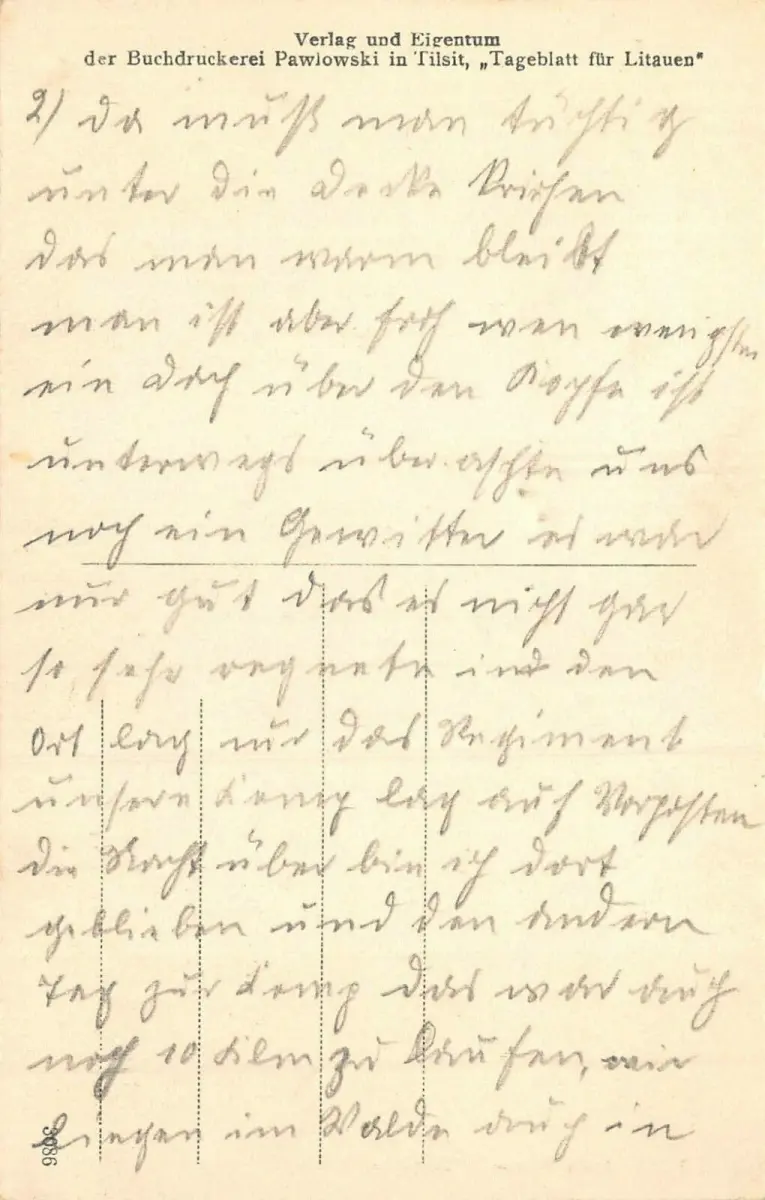 Verlag und Eigentum
der Buchdruckerei Pawlowski in Tilsit, „Tageblatt für Litauen“
2) da muß man tüchtig
unter die Decke kriehen
das man warm bleibt
man ist aber froh wen wenigsten
ein Dach über den Kopfe ist
unterwegs überaschte uns
noch ein Gewitter es war
nur gut das es nicht gar
so sehr regnete in den
Ort lag nur das Regiment
unsere Komp lag auf Vorposten
die Nacht über bin ich dort
geblieben und den andern
Tag zur Komp das war auch
noch 10 Kilm zu Laufen, wir
liegen im Walde auch in
3086